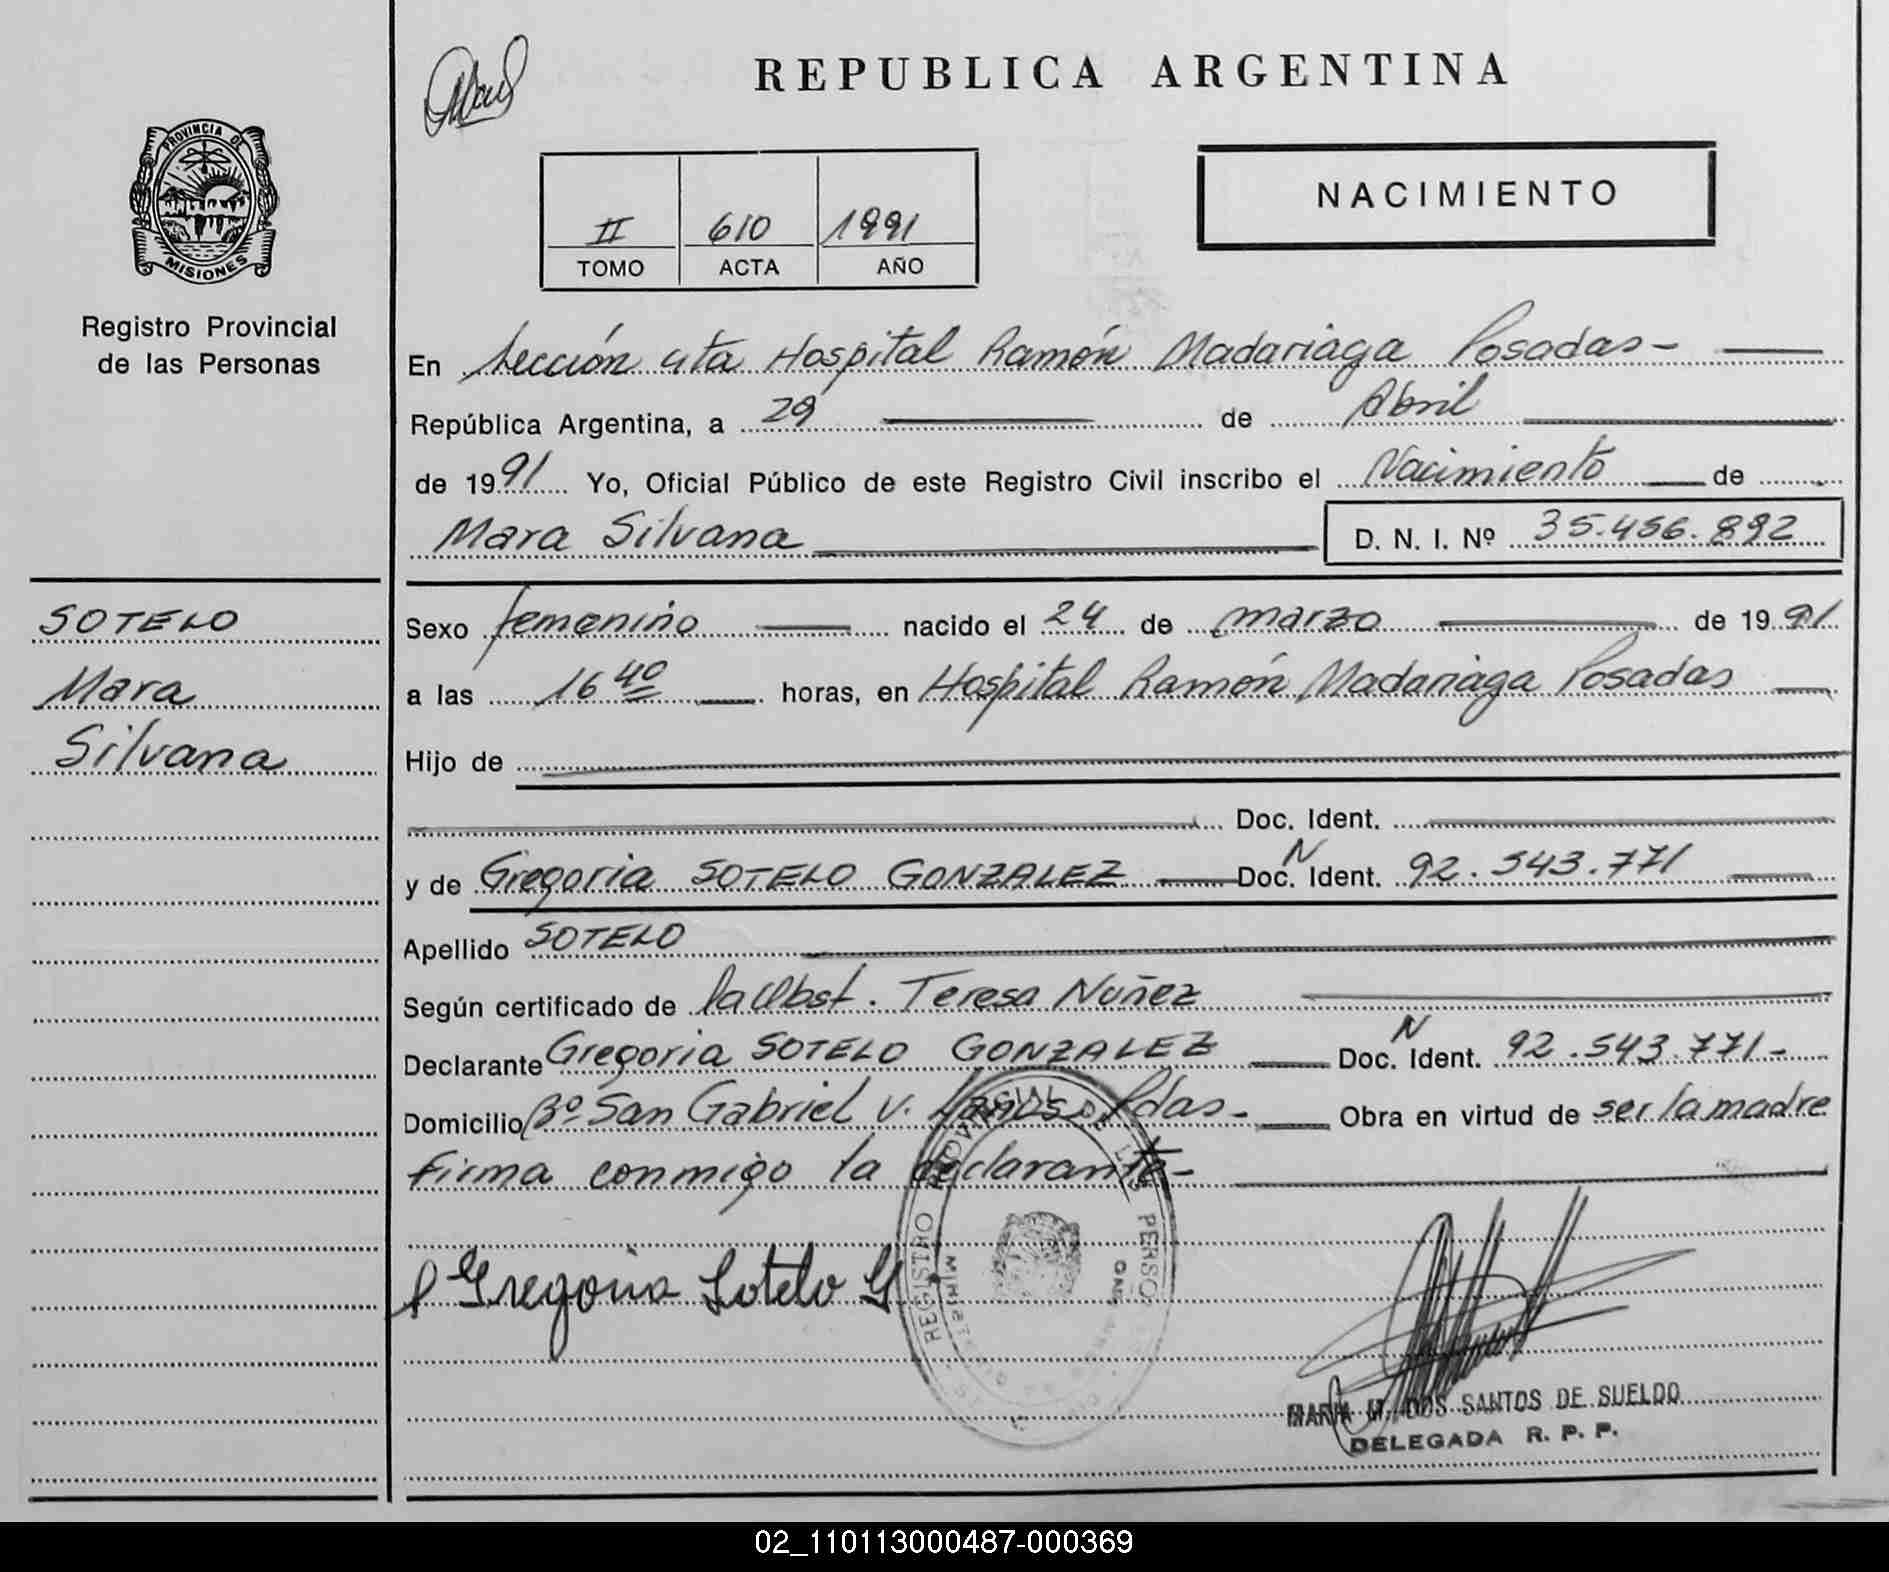 REPUBLICA ARGENTINA
PROVINCIA DE
MISIONES
Registro Provincial
de las Personas
II 610 1991
TOMO ACTA AÑO
NACIMIENTO
En Sección 4ta Hospital Ramón Madariaga Posadas-
República Argentina, a 29 de Abril
de 1991 Yo, Oficial Público de este Registro Civil inscribo el Nacimiento de
Mara Silvana D. N. I. Nº 35.456.892
SOTELO
Mara
Silvana
Sexo femenino nacido el 24 de marzo de 1991
a las 16 40 horas, en Hospital Ramón Madariaga Posadas
Hijo de
Doc. Ident.
y de Gregoria SOTELO GONZALEZ Doc. N Ident. 92.543.771
Apellido SOTELO
Según certificado de la Obst. Teresa Nuñez
Declarante Gregoria SOTELO GONZALEZ Doc. N Ident. 92.543.771-
Domicilio Bº San Gabriel V. Lanus Pdas- Obra en virtud de ser la madre
firma conmigo la declarante-
Gregoria Sotelo G
REGISTRO PROVINCIAL DE LAS PERSONAS
MARIA M. DOS SANTOS DE SUELDO
DELEGADA R. P. P.
02_110113000487-000369